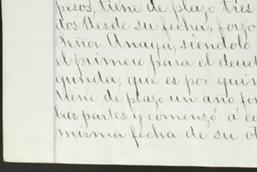 pesos, tiene de plazo tres
dos desde su fecha, forzo
Señor Anaya, siendolo
el primero para el deud
gunda, que es por quin
tiene de plazo un año for
bas partes y comenzó á co
misma fecha de su ot